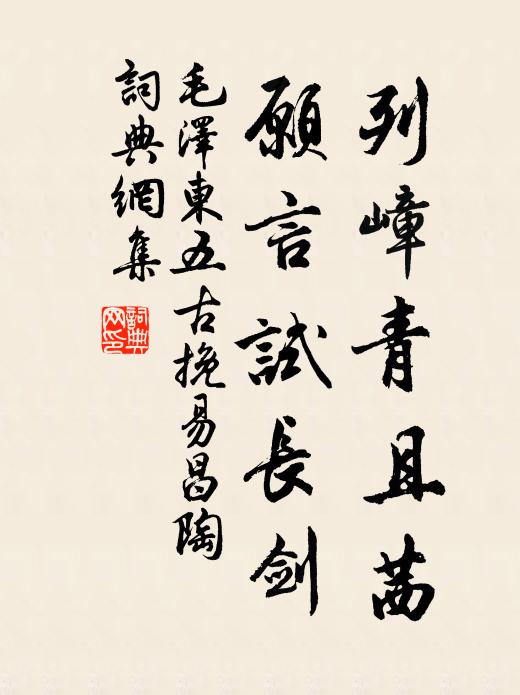 列嶂青且茜
願言試長劍
毛澤東五古挽易昌陶
詞典網集
詞典網印